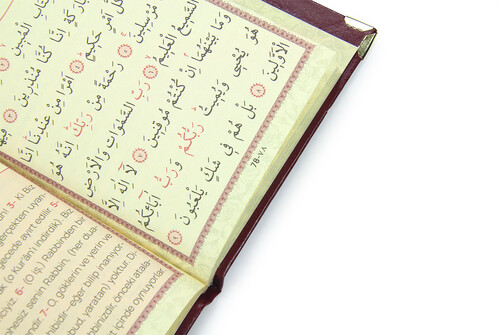 الْمُبِينِ
اِنَّا كُنَّا مُنْذِرِينَ ٣ فِيهَا
كُلُّ اَمْرٍ حَكِيمٍ ٤ اَمْرًا مِنْ عِنْدِنَا اِنَّا
مُرْسِلِينَ ٥ رَحْمَةً مِنْ رَبِّكَ اِنَّهُ هُوَ
السَّمِيعُ الْعَلِيمُ ٦ رَبِّ السَّمٰوَاتِ وَالْاَرْضِ
وَمَا بَيْنَهُمَا اِنْ كُنْتُمْ مُوقِنِينَ ٧ لَا اِلٰهَ اِلَّا
هُوَ يُحْيِي وَيُمِيتُ رَبُّكُمْ وَرَبُّ اٰبَائِكُمُ
الْاَوَّلِينَ ٨ بَلْ هُمْ فِي شَكٍّ يَلْعَبُونَ ٩
78-٧٨
3- Ki Biz
gerçekten uyan-
gecede ayırt edilir. 5-
(o Kur'ân'ı indirdik). Biz,
6- (O iş,) Rabbinden bir
senin Rabbin, (her dua-
7- O, göklerin ve yerin ve
eğer bilip inanıyor-
yaratan) yoktur. Di-
önceki atala-
içinde oynuyorlar.